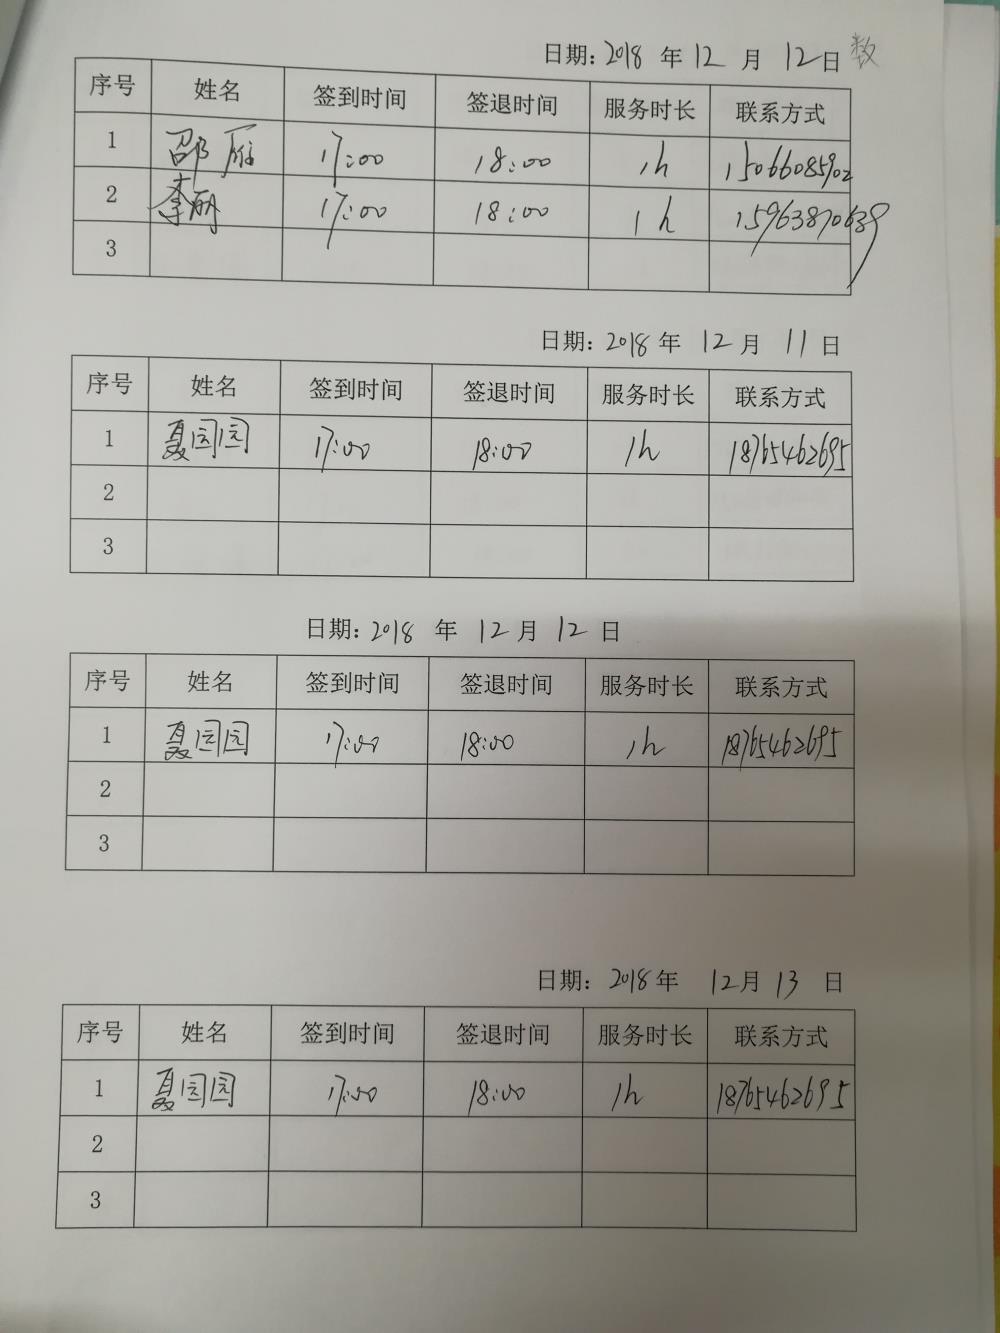 日期: 2018 年 12 月 12日 数
序号 姓名 签到时间 签退时间 服务时长 联系方式
1 邵雁 17:00 18:00 1h 15066085902
2 李丽 17:00 18:00 1h 15963870639
3
日期: 2018 年 12 月 11 日
序号 姓名 签到时间 签退时间 服务时长 联系方式
1 聂园园 17:00 18:00 1h 18765462695
2
3
日期: 2018 年 12 月 12 日
序号 姓名 签到时间 签退时间 服务时长 联系方式
1 聂园园 17:00 18:00 1h 18765462695
2
3
日期: 2018 年 12 月 13 日
序号 姓名 签到时间 签退时间 服务时长 联系方式
1 聂园园 17:00 18:00 1h 18765462695
2
3